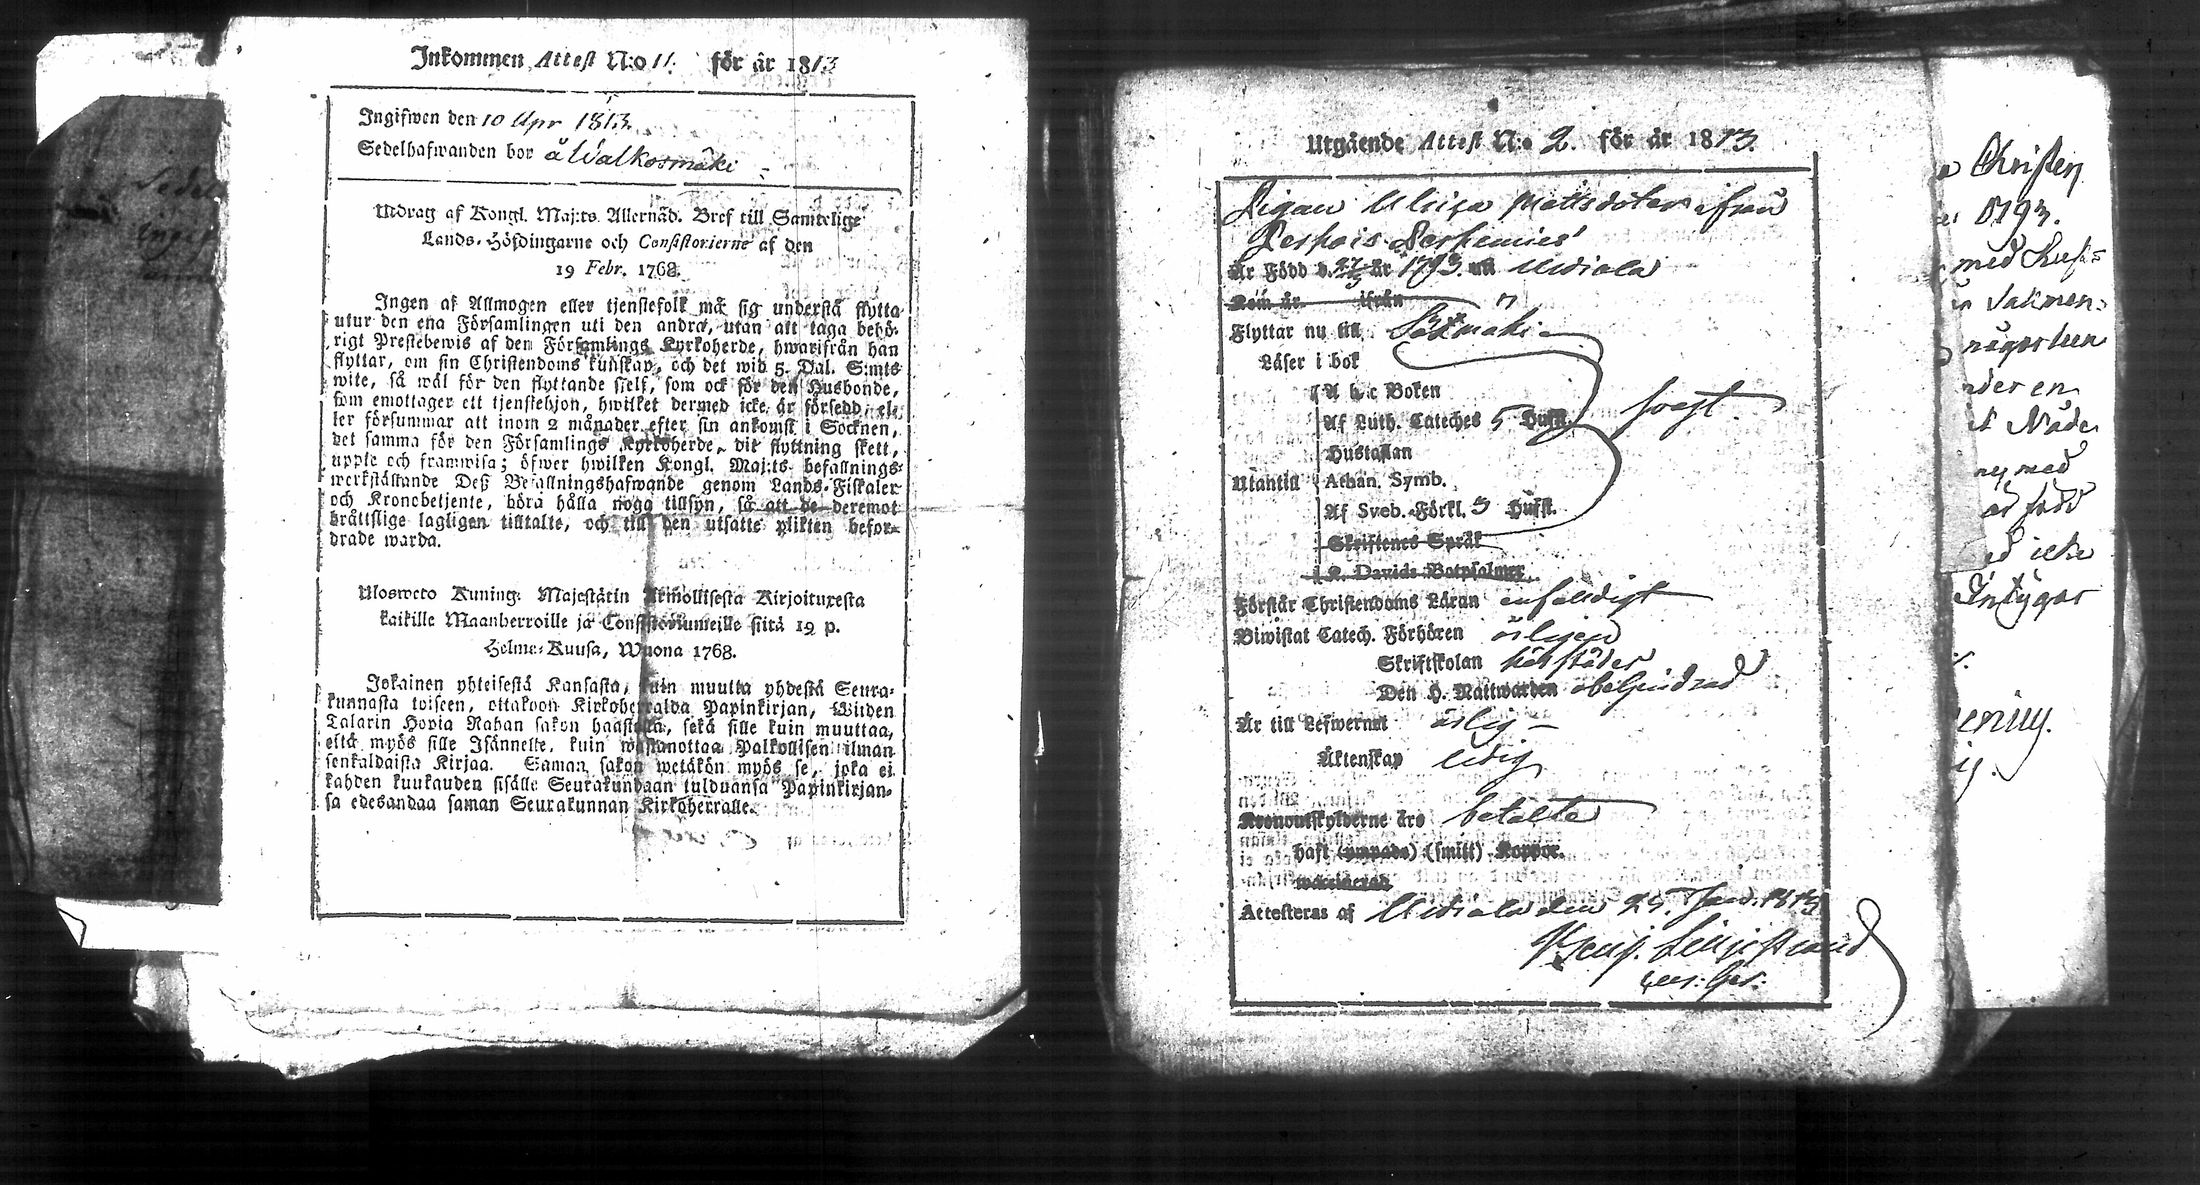 Inkommen Attest N:o 11. för år 1813
Ingifwen den 10 Apr 1813.
Sedelhafwanden bor å Walkosmäki
Utdrag af Kongl. Maj:ts Allernåd. Bref till Samtelige
Lands-Höfdingarne och Consistorierne af den
19 Febr. 1768.
Ingen af Allmogen eller tjenstefolk må sig understå flytta
utur den ena Församlingen uti den andra, utan att taga behö-
rigt Prestebewis af den Församlings Kyrkoherde, hwarifrån han
flyttar, om sin Christendoms kunskap, och det wid 5. Dal. S:mts
wite, så wäl för den flyttande sielf, som ock för den Husbonde,
som emottager ett tjenstehjon, hwilket dermed icke är försedd, el-
ler försummar att inom 2 månader efter sin ankomst i Socknen,
det samma för den Församlings Kyrkoherde, dit flyttning skett,
upple och framwisa; öfwer hwilken Kongl. Maj:ts befallnings-
werkställande Deß Befallningshafwande genom Lands-Fiskaler
och Kronobetjente, böra hålla noga tillsyn, så att de deremot
bråttslige lagligen tilltalte, och till den utsatte plikten befor-
drade warda.
Ulosweto Kuning: Majestätin Armollisesta Kirjoituxesta
kaikille Maanherroille ja Consistoriumeille siitä 19 p.
Helme-Kuusa, Wuona 1768.
Jokainen yhteisestä Kansasta, kuin muutta yhdestä Seura-
kunnasta toiseen, ottakoon Kirkoherralda Papinkirjan, Wiiden
Talarin Hopia Rahan sakon haastolla, sekä sille kuin muuttaa,
että myös sille Isännelle, kuin wastanottaa Palkollisen ilman
senkaldaista Kirjaa. Saman sakon wetäkön myös se, joka ei
kahden kuukauden sisälle Seurakundaan tulduansa Papinkirjan-
sa edesandaa saman Seurakunnan Kirkoherralle.
Utgående Attest N:o 2. för år 1813.
Pigan Ulrica Mattsdoter ifrån
Är Född d. 27/3 år 1793. uti Urdiala
Kom år ifrån
Flyttar nu till Säxmäki
Läser i bok
A b c Boken
Af Luth. Cateches 5 Hufst. svagt.
Hustaflan
Utantill Athan. Symb.
Af Sveb. Förkl. 3 Hufst.
Skriftenes Språk
K. Davids Botpsalmer
Förstår Christendoms Läran enfaldigt
Biwistat Catech. Förhören årligen
Skriftskolan härstädes
Den H. Nattwarden obehindrad
Är till Lefwernet ärlig
Äktenskap ledig
Kronoutskylderne äro betalte
haft (ympade) (smitt) Koppor.
waccinerad
Attesteras af Urdiala den 25. Jan. 1813
Christen
1793.
med
Nåde
med
född
icke
Intygar